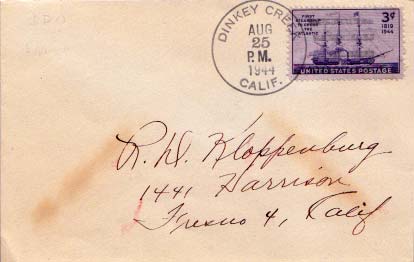 DINKEY CREEK
AUG
25
P.M.
1944
CALIF.
FIRST
STEAMSHIP
TO CROSS
THE
ATLANTIC
3¢
1819
1944
UNITED STATES POSTAGE
R. W. Kloppenburg
1441 Harrison
Fresno 4, Calif